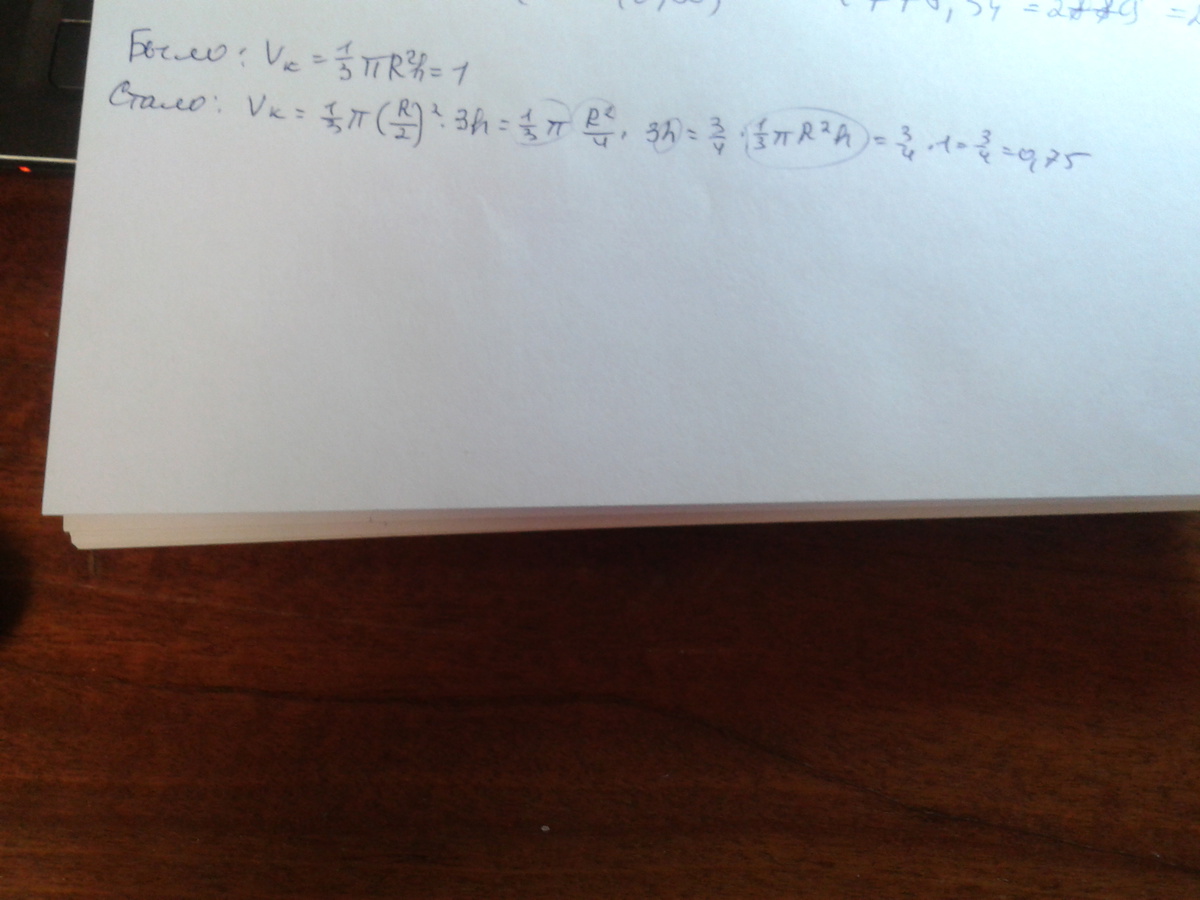 Было: Vк = 1/3 πR²h = 1
Стало: Vк = 1/3 π(R/2)² · 3h = 1/3 π R²/4 · 3h = 3/4 · 1/3 πR²h = 3/4 · 1 = 3/4 = 0,75